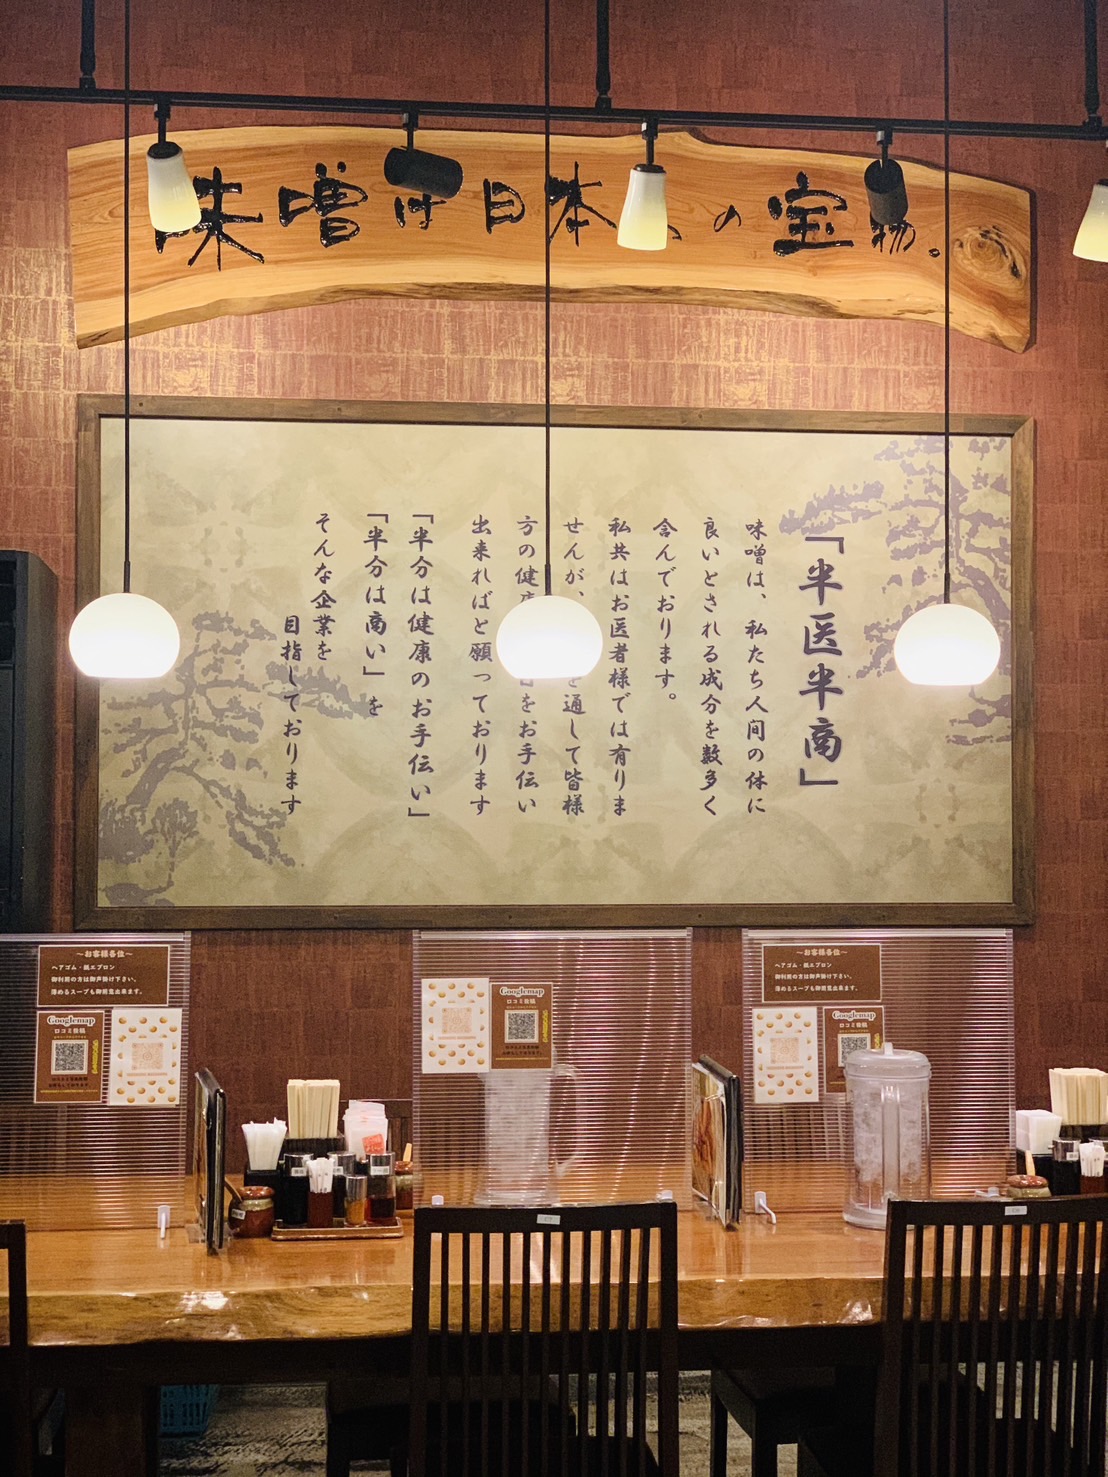 味噌は日本の宝物。
「半医半商」
味噌は、私たち人間の体に
良いとされる成分を数多く
含んでおります。
私共はお医者様では有りま
せんが、を通して皆様
方の健をお手伝い
出来ればと願っております
「半分は健康のお手伝い」
「半分は商い」を
そんな企業を
目指しております
～お客様各位～
ヘアゴム・紙エプロン
御利用の方は御声掛け下さい。
薄めるスープも御用意出来ます。
Googlemap
口コミ投稿
Googlemap
口コミ投稿
～お客様各位～
ヘアゴム・紙エプロン
御利用の方は御声掛け下さい。
薄めるスープも御用意出来ます。
Googlemap
口コミ投稿